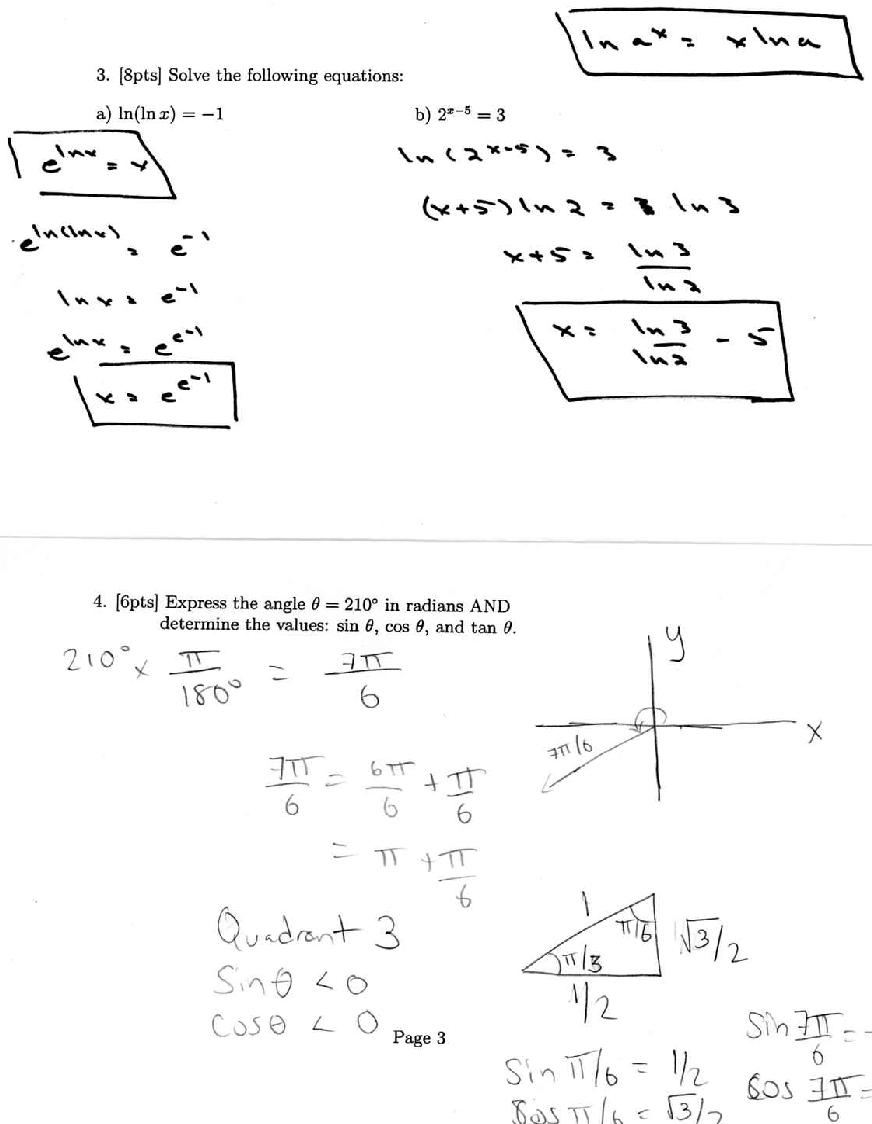 ln aˣ = x ln a
3. [8pts] Solve the following equations:
a) ln(ln x) = −1
b) 2ˣ⁻⁵ = 3
e^(ln x) = x
e^(ln(ln x)) = e⁻¹
ln x = e⁻¹
e^(ln x) = e^(e⁻¹)
x = e^(e⁻¹)
ln(2ˣ⁻⁵) = 3
(x+5) ln 2 = ln 3
x+5 = ln 3 / ln 2
x = ln 3 / ln 2 - 5
4. [6pts] Express the angle θ = 210° in radians AND
determine the values: sin θ, cos θ, and tan θ.
210° × π/180° = 7π/6
7π/6 = 6π/6 + π/6
= π + π/6
Quadrant 3
Sin θ < 0
Cos θ < 0
y
x
7π/6
1
π/6
√3/2
π/3
1/2
Page 3
Sin π/6 = 1/2
Cos π/6 = √3/2
Sin 7π/6 = -
Cos 7π/6 =